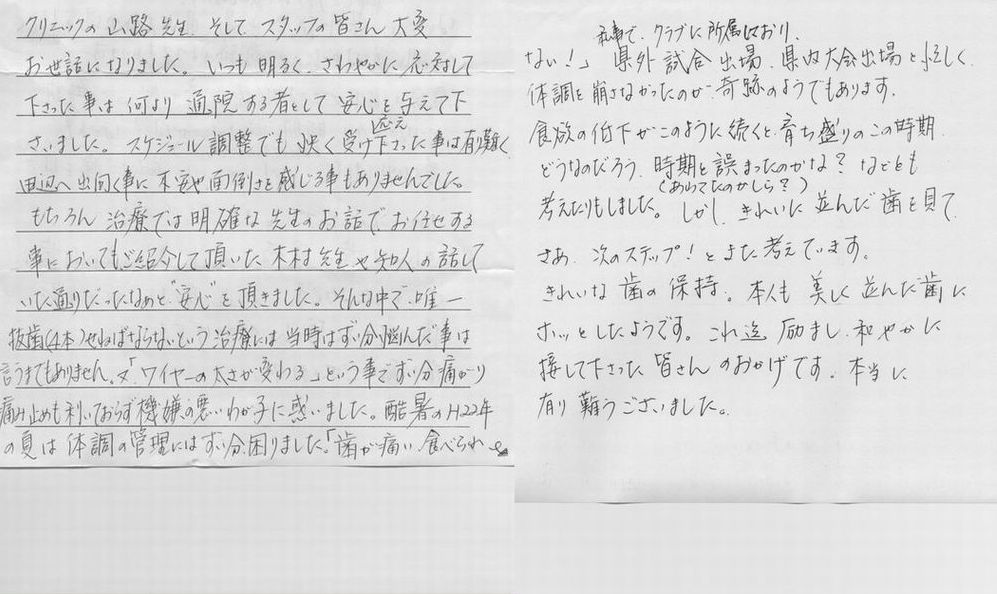 クリニックの山路先生、そして、スタッフの皆さん 大変
お世話になりました。いつも明るく、さわやかに応対して
下さった事は何より通院する者として安心を与えて下
さいました。スケジュール調整でも快く受け応え下さった事は有難く
田辺へ出向く事に不安や面倒さを感じる事もありませんでした。
もちろん治療では明確な先生のお話で、お任せする
事においてもご紹介して頂いた木村先生や知人の話して
いた通りだったなあと"安心"を頂きました。そんな中で、唯一
抜歯(4本)せねばならないという治療には当時はずい分悩んだ事は
言うまでもありません。又「ワイヤーの太さが変わる」という事でずい分痛がり
痛み止めも利いておらず機嫌の悪いわが子に惑いました。酷暑のH22年
の夏は体調の管理にはずい分困りました。「歯が痛い、食べられ
ない!」 県外試合出場、県内大会出場と忙しく、
私事で、クラブに所属しており、
体調を崩さなかったのが奇跡のようでもあります。
食欲の低下がこのように続くと、育ち盛りのこの時期
どうなのだろう、時期を誤まったのかな? などとも
(あわてたのかしら?)
考えたりもしました。しかし、きれいに並んだ歯を見て、
さあ、次のステップ!とまた考えています。
きれいな歯の保持。本人も美しく並んだ歯に
ホッとしたようです。これ迄 励まし、和やかに
接して下さった皆さんのおかげです。本当に
有り難うございました。